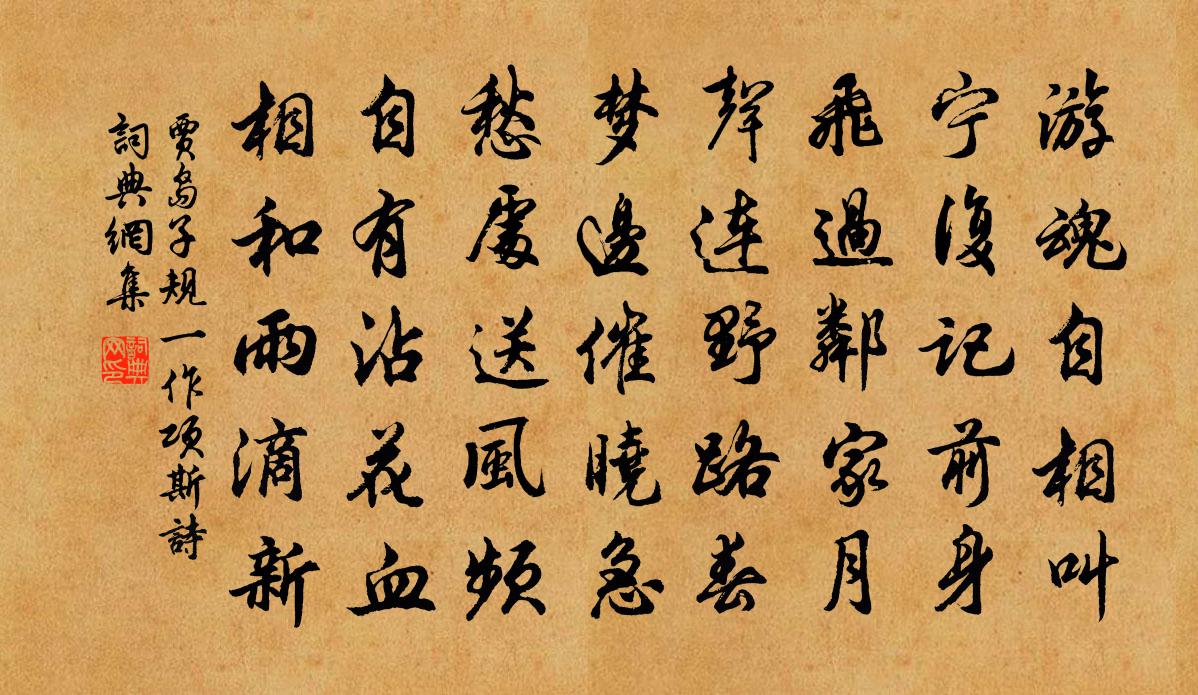 游魂自相叫
宁復记前身
飛過鄰家月
聲连野路春
梦邊催曉急
愁處送風頻
自有沾花血
相和雨滴新
賈島子規一作项斯詩
詞典網集
詞典網印